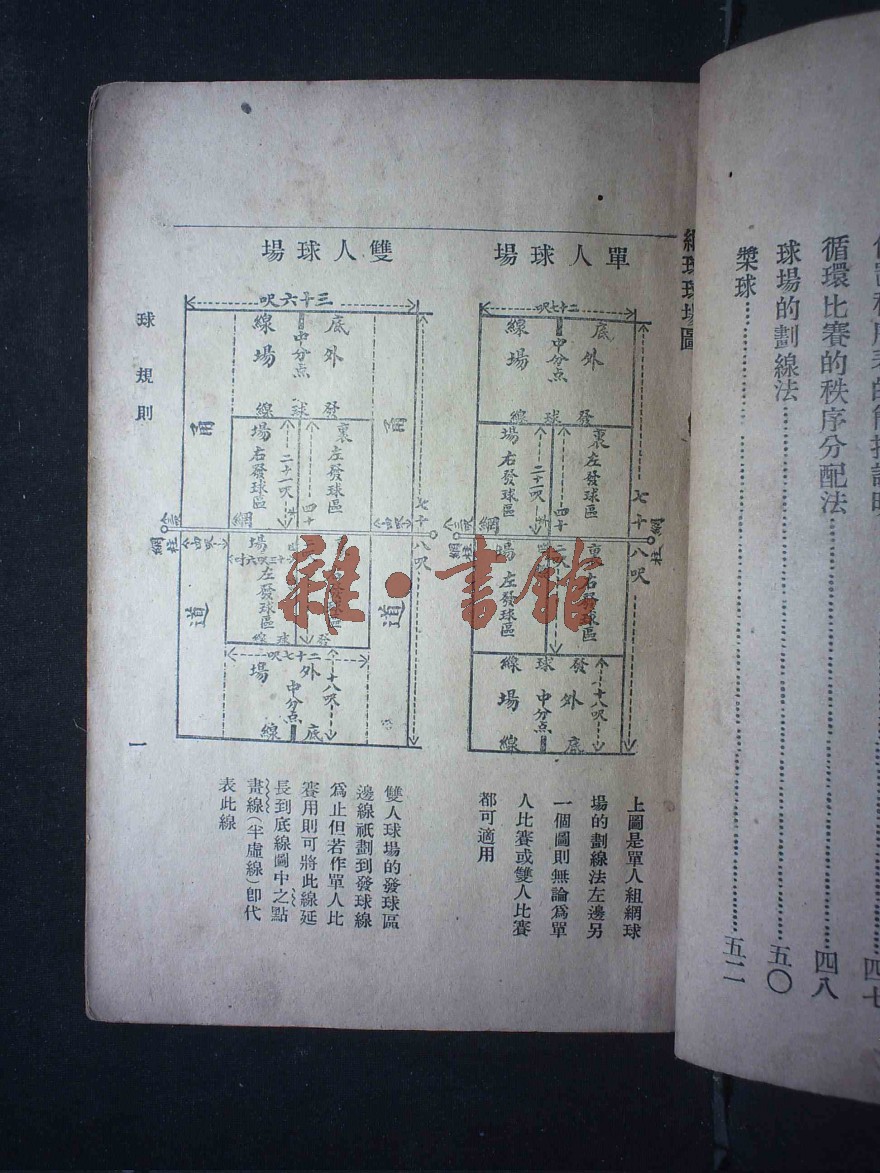 循環比賽的秩序分配法……四八
球場的劃線法……五〇
槳球……五二
網球球場圖
單人球場
二十七呎
底線
中分点
外場
發球線
裏場
左發球區
右發球區
二十一呎
四十二呎
七十八呎
網
網柱
三呎
裏場
右發球區
左發球區
發球線
十八呎
外場
中分点
底線
上圖是單人組網球
場的劃線法左邊另
一個圖則無論爲單
人比賽或雙人比賽
都可適用
雙人球場
三十六呎
底線
中分点
外場
發球線
甬
甬
裏場
左發球區
右發球區
二十一呎
四十
七十八呎
網
網柱
三呎
場
左發球區
發球區
道
道
發球線
二十七呎
十八呎
外場
中分点
底線
雙人球場的發球區
邊線祇劃到發球線
爲止但若作單人比
賽用則可將此線延
長到底線圖中之點
畫線(半虛線)卽代
表此線
球規則
一
雜·書館